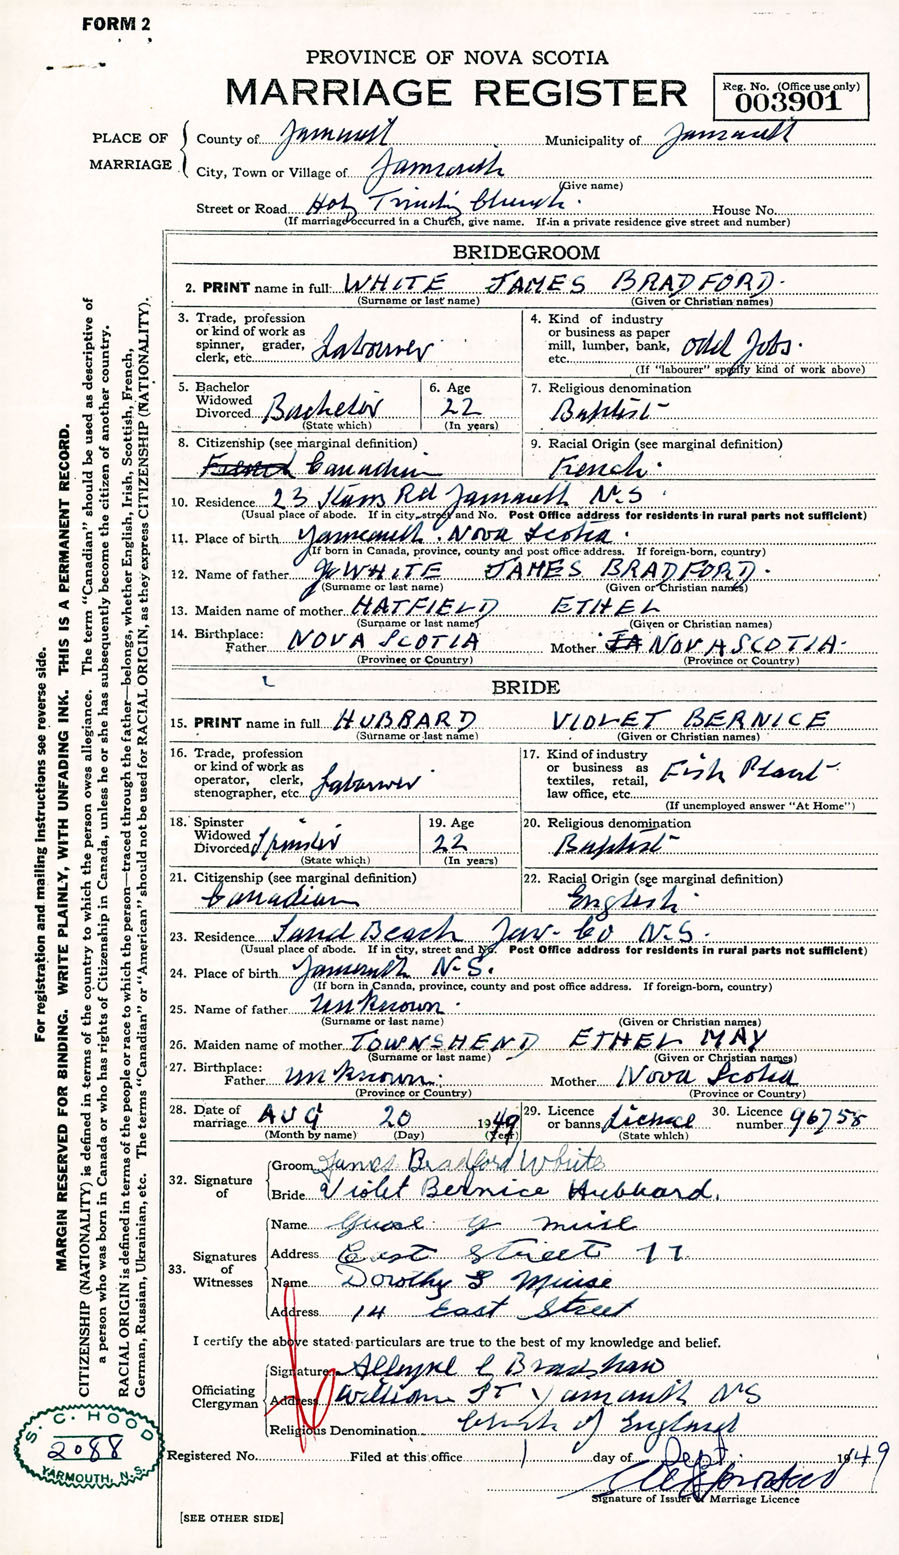 FORM 2
PROVINCE OF NOVA SCOTIA
MARRIAGE REGISTER
Reg. No. (Office use only)
003901
PLACE OF MARRIAGE
County of Yarmouth Municipality of Yarmouth
City, Town or Village of Yarmouth
(Give name)
Street or Road Holy Trinity Church. House No.
(If marriage occurred in a Church, give name. If in a private residence give street and number)
BRIDEGROOM
2. PRINT name in full: WHITE JAMES BRADFORD.
(Surname or last name) (Given or Christian names)
3. Trade, profession or kind of work as spinner, grader, clerk, etc. Labourer
4. Kind of industry or business as paper mill, lumber, bank, etc. odd Jobs.
(If "labourer" specify kind of work above)
5. Bachelor Widowed Divorced Bachelor
(State which)
6. Age 22
(In years)
7. Religious denomination
Baptist
8. Citizenship (see marginal definition)
French Canadian
9. Racial Origin (see marginal definition)
French.
10. Residence 23 Rd Yarmouth N.S.
(Usual place of abode. If in city, street and No. Post Office address for residents in rural parts not sufficient)
11. Place of birth Yarmouth. Nova Scotia.
(If born in Canada, province, county and post office address. If foreign-born, country)
12. Name of father WHITE JAMES BRADFORD.
(Surname or last name) (Given or Christian names)
13. Maiden name of mother HATFIELD ETHEL
(Surname or last name) (Given or Christian names)
14. Birthplace: Father NOVA SCOTIA Mother NOVA SCOTIA.
(Province or Country) (Province or Country)
BRIDE
15. PRINT name in full HUBBARD VIOLET BERNICE
(Surname or last name) (Given or Christian names)
16. Trade, profession or kind of work as operator, clerk, stenographer, etc. Labourer
17. Kind of industry or business as textiles, retail, law office, etc. Fish Plant
(If unemployed answer "At Home")
18. Spinster Widowed Divorced Spinster
(State which)
19. Age 22
(In years)
20. Religious denomination
Baptist
21. Citizenship (see marginal definition)
Canadian
22. Racial Origin (see marginal definition)
English
23. Residence Sand Beach Yar. Co N.S.
(Usual place of abode. If in city, street and No. Post Office address for residents in rural parts not sufficient)
24. Place of birth Yarmouth N.S.
(If born in Canada, province, county and post office address. If foreign-born, country)
25. Name of father Unknown.
(Surname or last name) (Given or Christian names)
26. Maiden name of mother TOWNSHEND ETHEL MAY
(Surname or last name) (Given or Christian names)
27. Birthplace: Father Unknown. Mother Nova Scotia
(Province or Country) (Province or Country)
28. Date of marriage AUG 20 1949
(Month by name) (Day) (Year)
29. Licence or banns Licence
(State which)
30. Licence number 96758
32. Signature of
Groom James Bradford White
Bride Violet Bernice Hubbard.
33. Signatures of Witnesses
Name
Address East Street 17
Name Dorothy Muise
Address 14 East Street
I certify the above stated particulars are true to the best of my knowledge and belief.
Officiating Clergyman
Signature Alleyne C Bradshaw
Address William St Yarmouth NS
Religious Denomination Church of England
Registered No. Filed at this office 1 day of Sept. 1949
Signature of Issuer of Marriage Licence
[SEE OTHER SIDE]
For registration and mailing instructions see reverse side.
MARGIN RESERVED FOR BINDING. WRITE PLAINLY, WITH UNFADING INK. THIS IS A PERMANENT RECORD.
CITIZENSHIP (NATIONALITY) is defined in terms of the country to which the person owes allegiance. The term "Canadian" should be used as descriptive of
a person who was born in Canada or who has rights of Citizenship in Canada, unless he or she has subsequently become the citizen of another country.
RACIAL ORIGIN is defined in terms of the people or race to which the person—traced through the father—belongs, whether English, Irish, Scottish, French,
German, Russian, Ukrainian, etc. The terms "Canadian" or "American" should not be used for RACIAL ORIGIN, as they express CITIZENSHIP (NATIONALITY).
S. C. HOOD
2088
YARMOUTH, N.S.